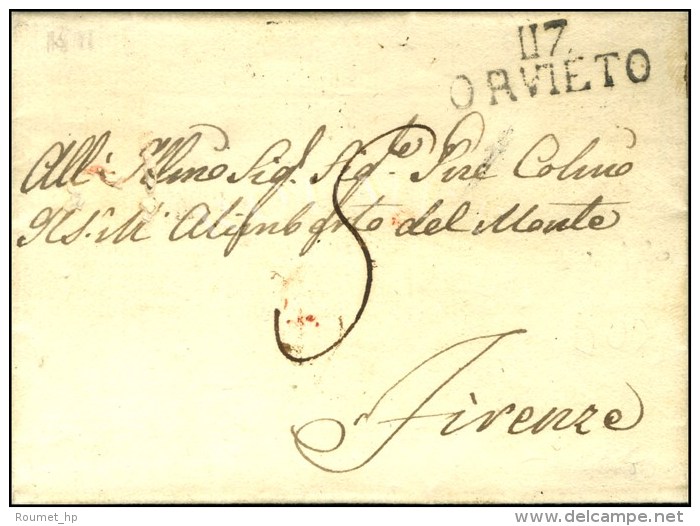 117
ORVIETO
All' Illmo Sig. Sig.e Pne Colmo
Il S. M.
del Monte
5
Firenze
© Roumet_hp
delcampe.net